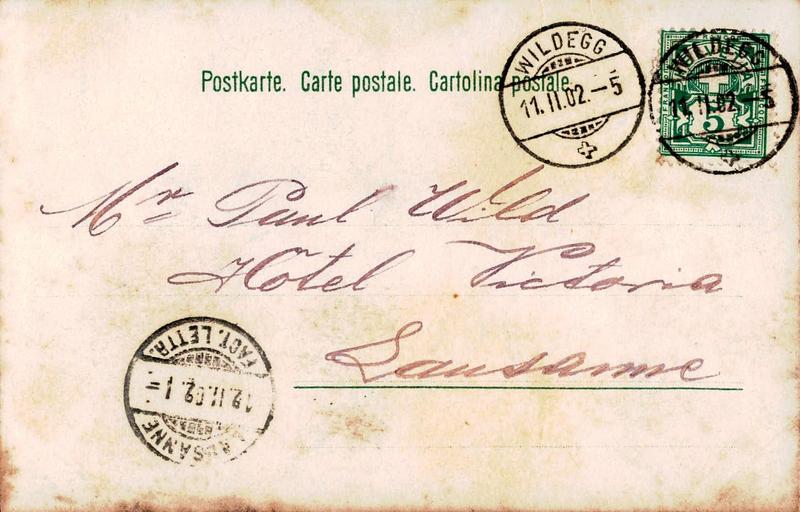 Postkarte. Carte postale. Cartolina postale.
WILDEGG
11.II.02.-5
11.II.02.-5
5
Mr Paul Wild
Hôtel Victoria
Lausanne
FACT. LETTR.
12.II.02. I=
LAUSANNE